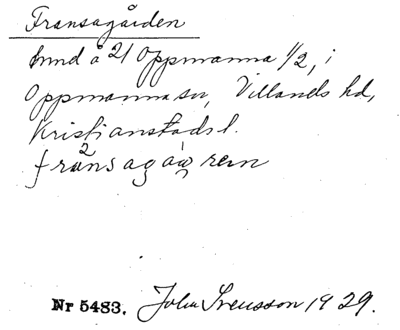 Fransagården
hmd å 21 Oppmanna 1/2, i
Oppmanna sn, Villands hd,
Kristianstads l.
fránsagaɷ̨rem
Nr 5483. John Svensson 1929.